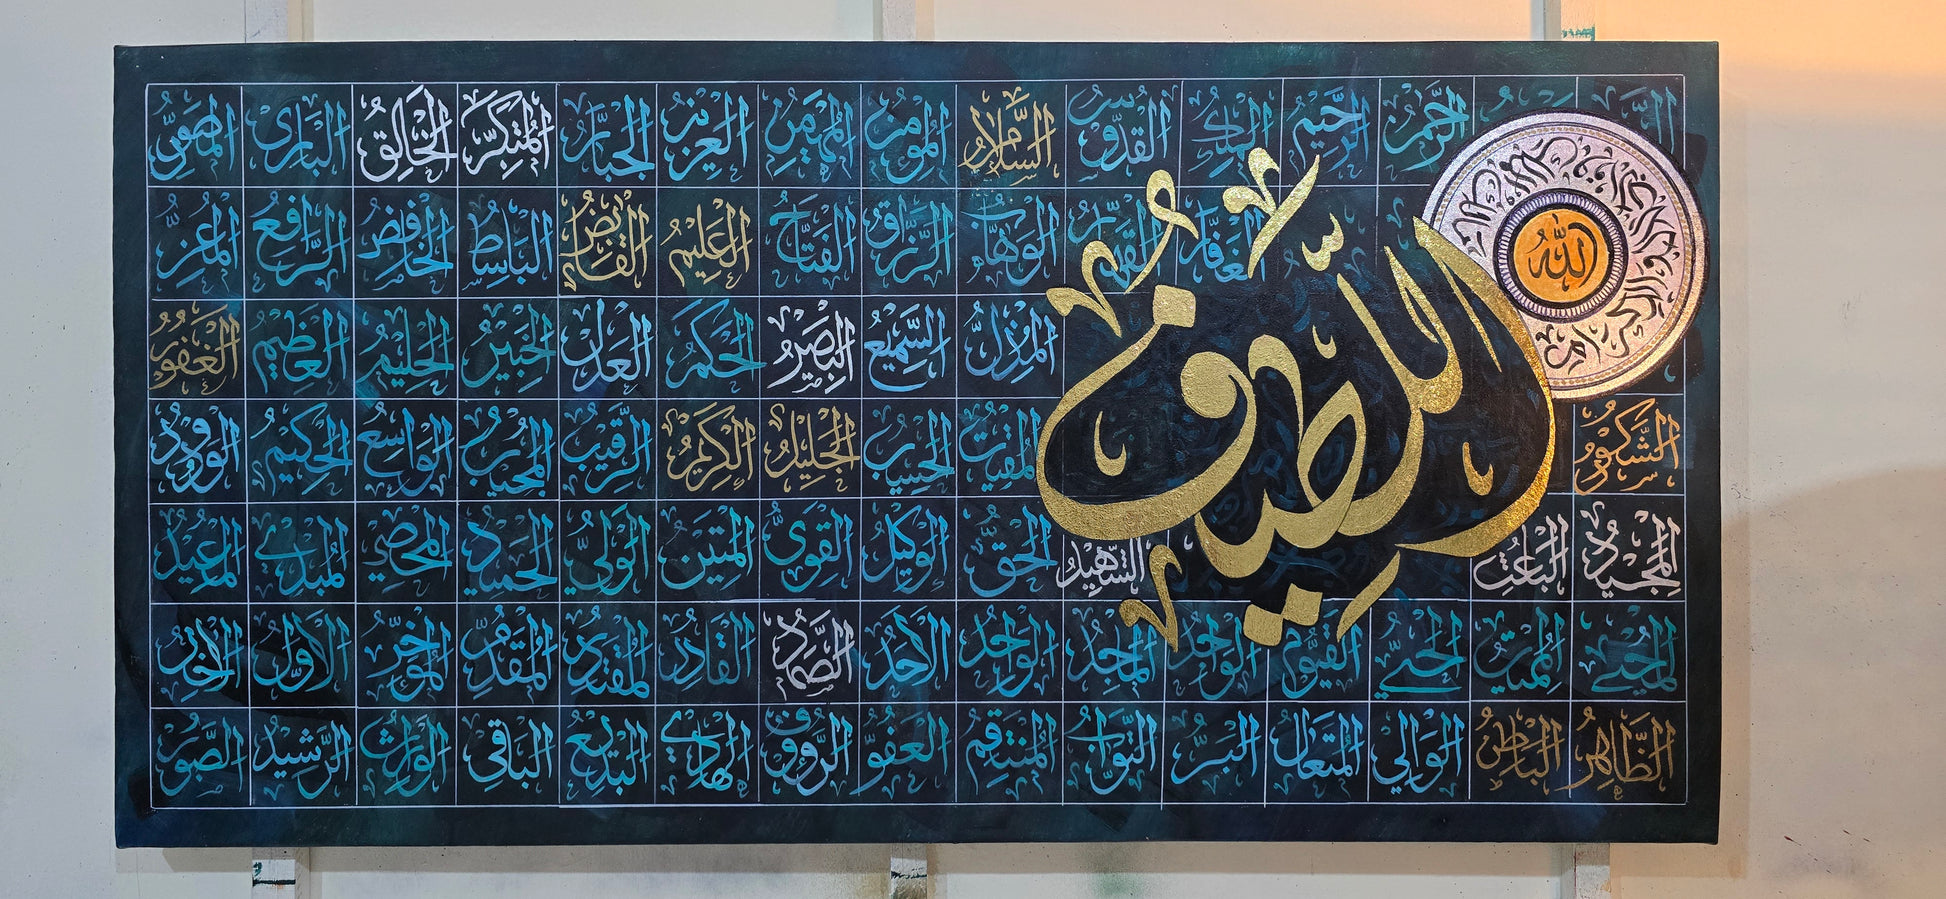 الرَّحْمٰنُ الرَّحِيمُ المَلِكُ القُدُّوسُ السَّلَامُ المُؤْمِنُ المُهَيْمِنُ العَزِيزُ الجَبَّارُ المُتَكَبِّرُ الخَالِقُ البَارِئُ المُصَوِّرُ
الله
اللَّطِيفُ
الغَفَّارُ القَهَّارُ الوَهَّابُ الرَّزَّاقُ الفَتَّاحُ العَلِيمُ القَابِضُ البَاسِطُ الخَافِضُ الرَّافِعُ المُعِزُّ
المُذِلُّ السَّمِيعُ البَصِيرُ الحَكَمُ العَدْلُ الخَبِيرُ الحَلِيمُ العَظِيمُ الغَفُورُ
الشَّكُورُ المُقِيتُ الحَسِيبُ الجَلِيلُ الكَرِيمُ الرَّقِيبُ المُجِيبُ الوَاسِعُ الحَكِيمُ الوَدُودُ
المَجِيدُ البَاعِثُ الشَّهِيدُ الحَقُّ الوَكِيلُ القَوِيُّ المَتِينُ الوَلِيُّ الحَمِيدُ المُحْصِي المُبْدِئُ المُعِيدُ
المُحْيِي المُمِيتُ الحَيُّ القَيُّومُ الوَاجِدُ المَاجِدُ الوَاحِدُ الاَحَدُ الصَّمَدُ القَادِرُ المُقْتَدِرُ المُقَدِّمُ المُؤَخِّرُ الاَوَّلُ الاَخِرُ
الظَّاهِرُ البَاطِنُ الوَالِي المُتَعَالُ البَرُّ التَّوَّابُ المُنْتَقِمُ العَفُوُّ الرَّؤُوفُ الهَادِي البَدِيعُ البَاقِي الوَارِثُ الرَّشِيدُ الصَّبُورُ